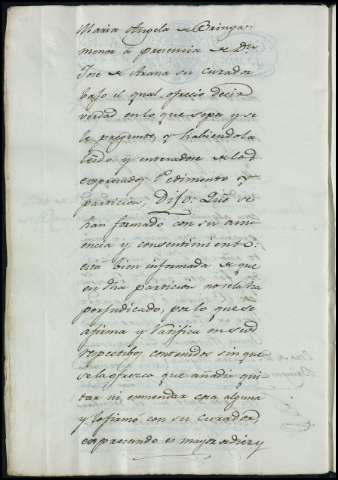 Maria Angela de Bringas
menor à presencia de Dn
Jose de Arana su curador
bajo el qual ofecio decir
verdad en lo que sepa y se
le pregunte, y habiendola
leido y enterado de los
expresados Pedimento y
particion, Dijo: Que se
han formado con su anu
encia y consentimiento:
está bien informada de que
en dha particion no se la ha
perjudicado, por lo que se
afirma y ratifica en sus
respectibos contenidos sin que
se la ofrezca que añadir qui
tar ni enmendar cosa alguna
y lo firmó con su curador,
expresando es mayor de diez y